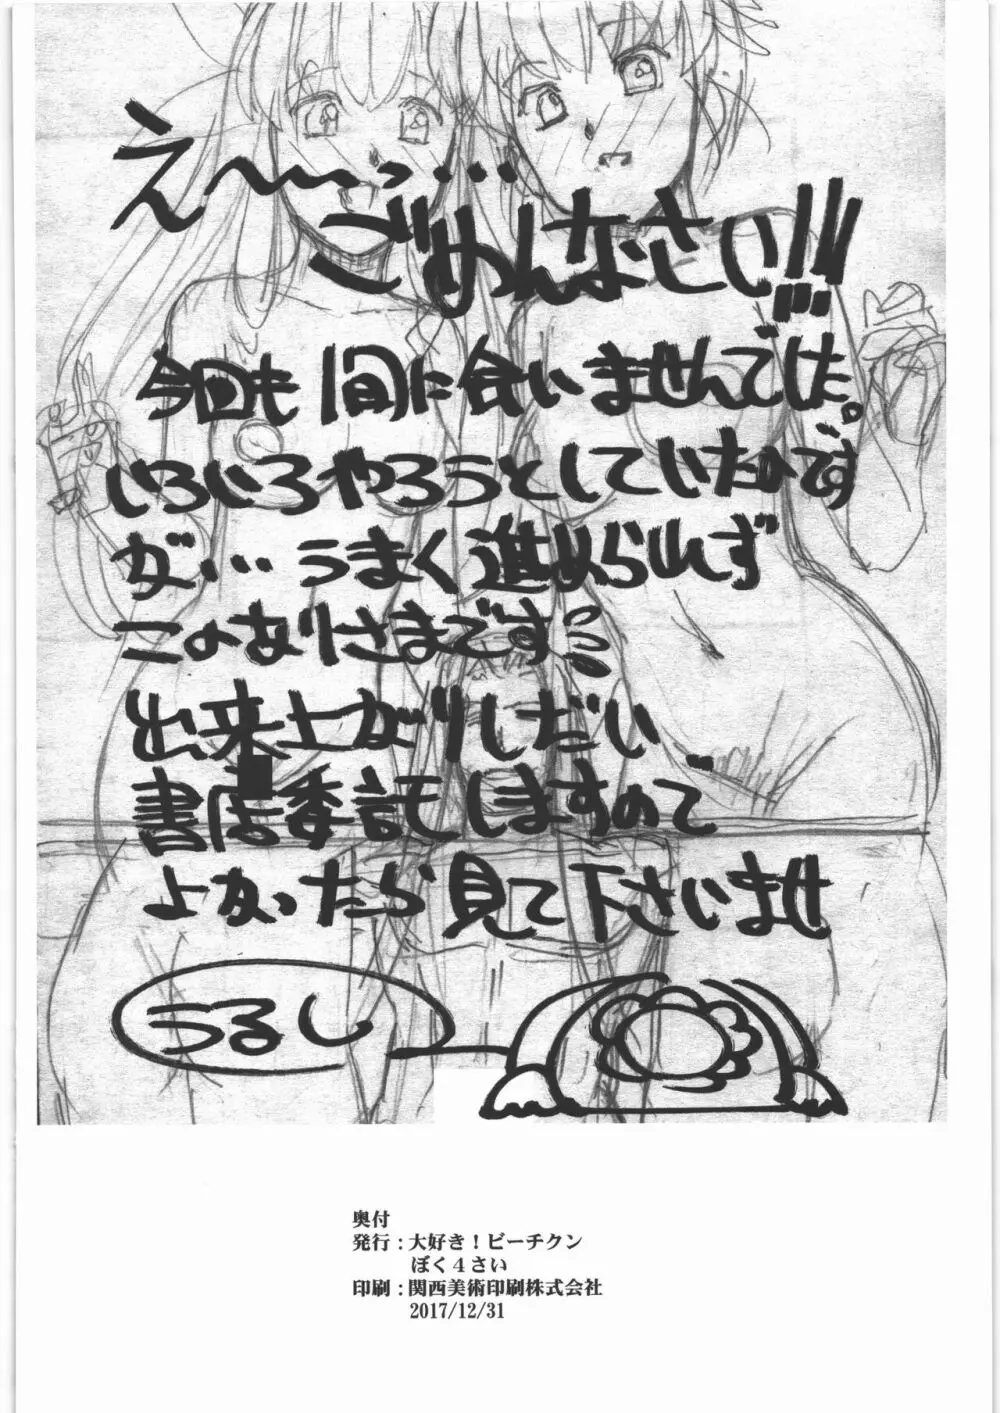 え〜〜っ・・・
ごめんなさい!!!
今回も間に合いませんでした。
いろいろやろうとしていたのです
が・・・うまく進められず
このありさまです
出来上がりしだい
書店委託しますので
よかったら見て下さいませ
うるし
奥付
発行：大好き！ビーチクン
ぼく４さい
印刷：関西美術印刷株式会社
2017/12/31